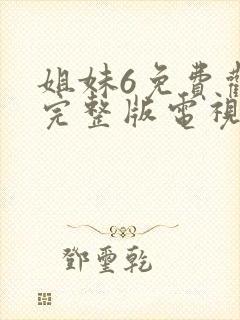 姐妹6免費
完整版電視
鄧璽乾